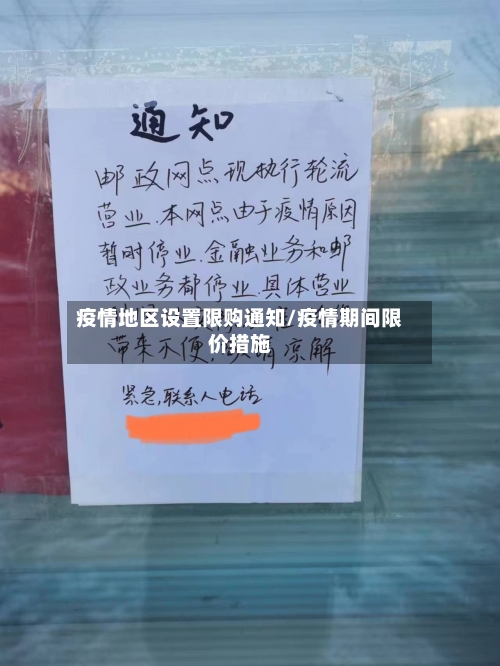 通知
邮政网点现执行轮流
营业.本网点由于疫情原因
暂时停业.金融业务和邮
政业务都停业.具体营业
疫情地区设置限购通知/疫情期间限
价措施
带来不便,
谅解
紧急,联系人电话